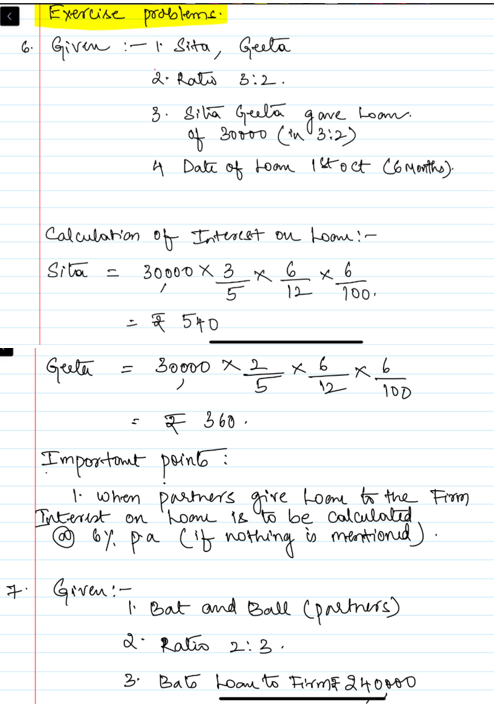 Exercise problems.
6. Given :- 1. Sita, Geeta
2. Ratio 3:2.
3. Sita Geeta gave Loan
of 30000 (in 3:2)
4 Date of Loan 1st oct (6 Months).
Calculation of Interest on Loan:-
Sita = 30,000 × 3/5 × 6/12 × 6/100.
= ₹ 540
Geeta = 30,000 × 2/5 × 6/12 × 6/100
= ₹ 360.
Important points:
1. when partners give Loan to the Firm
Interest on Loan is to be calculated
@ 6% p.a (if nothing is mentioned).
7. Given:-
1. Bat and Ball (partners)
2. Ratio 2:3.
3. Bats Loan to Firm ₹ 240,000